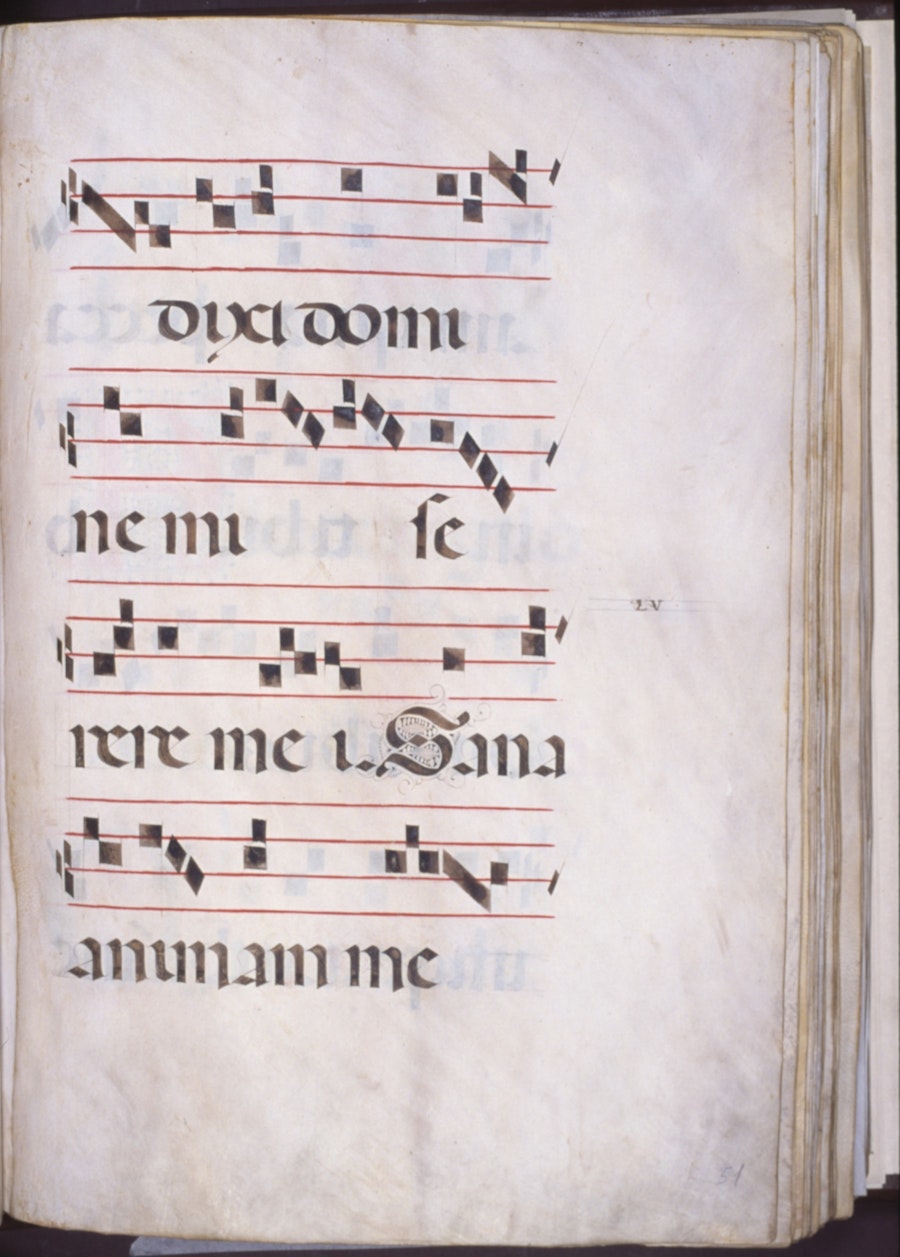 dixi domi
ne mi se
rere me i. Sana
LV
animam me
51